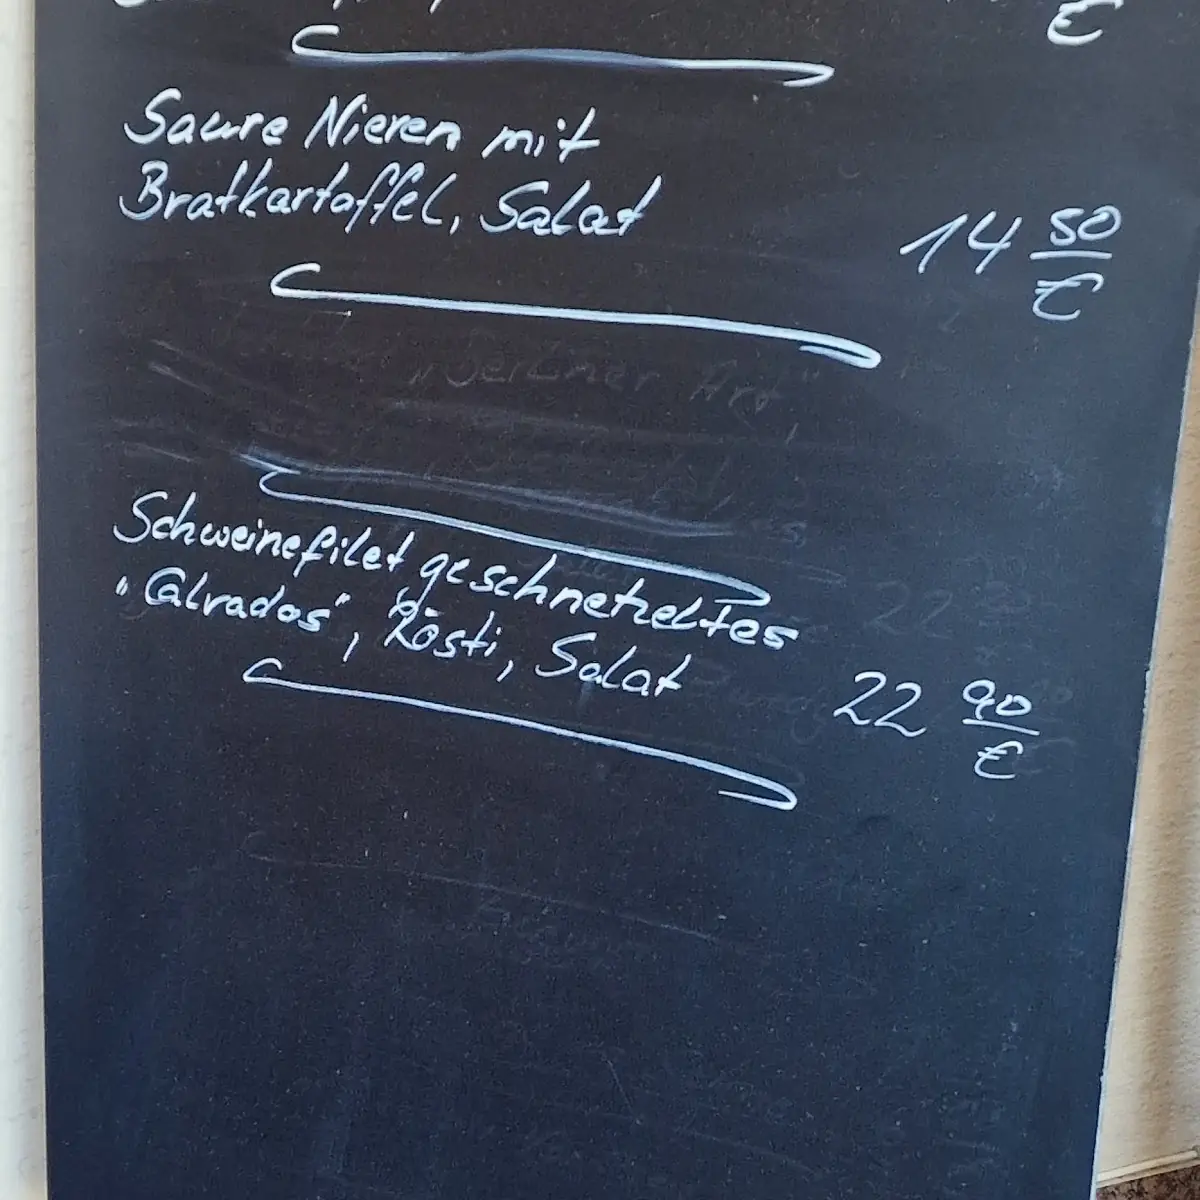 €
Saure Nieren mit
Bratkartoffel, Salat
14 50
€
"Berliner Art",
Schweinefilet geschnetzeltes
"Calvados", Rösti, Salat
22 90
€